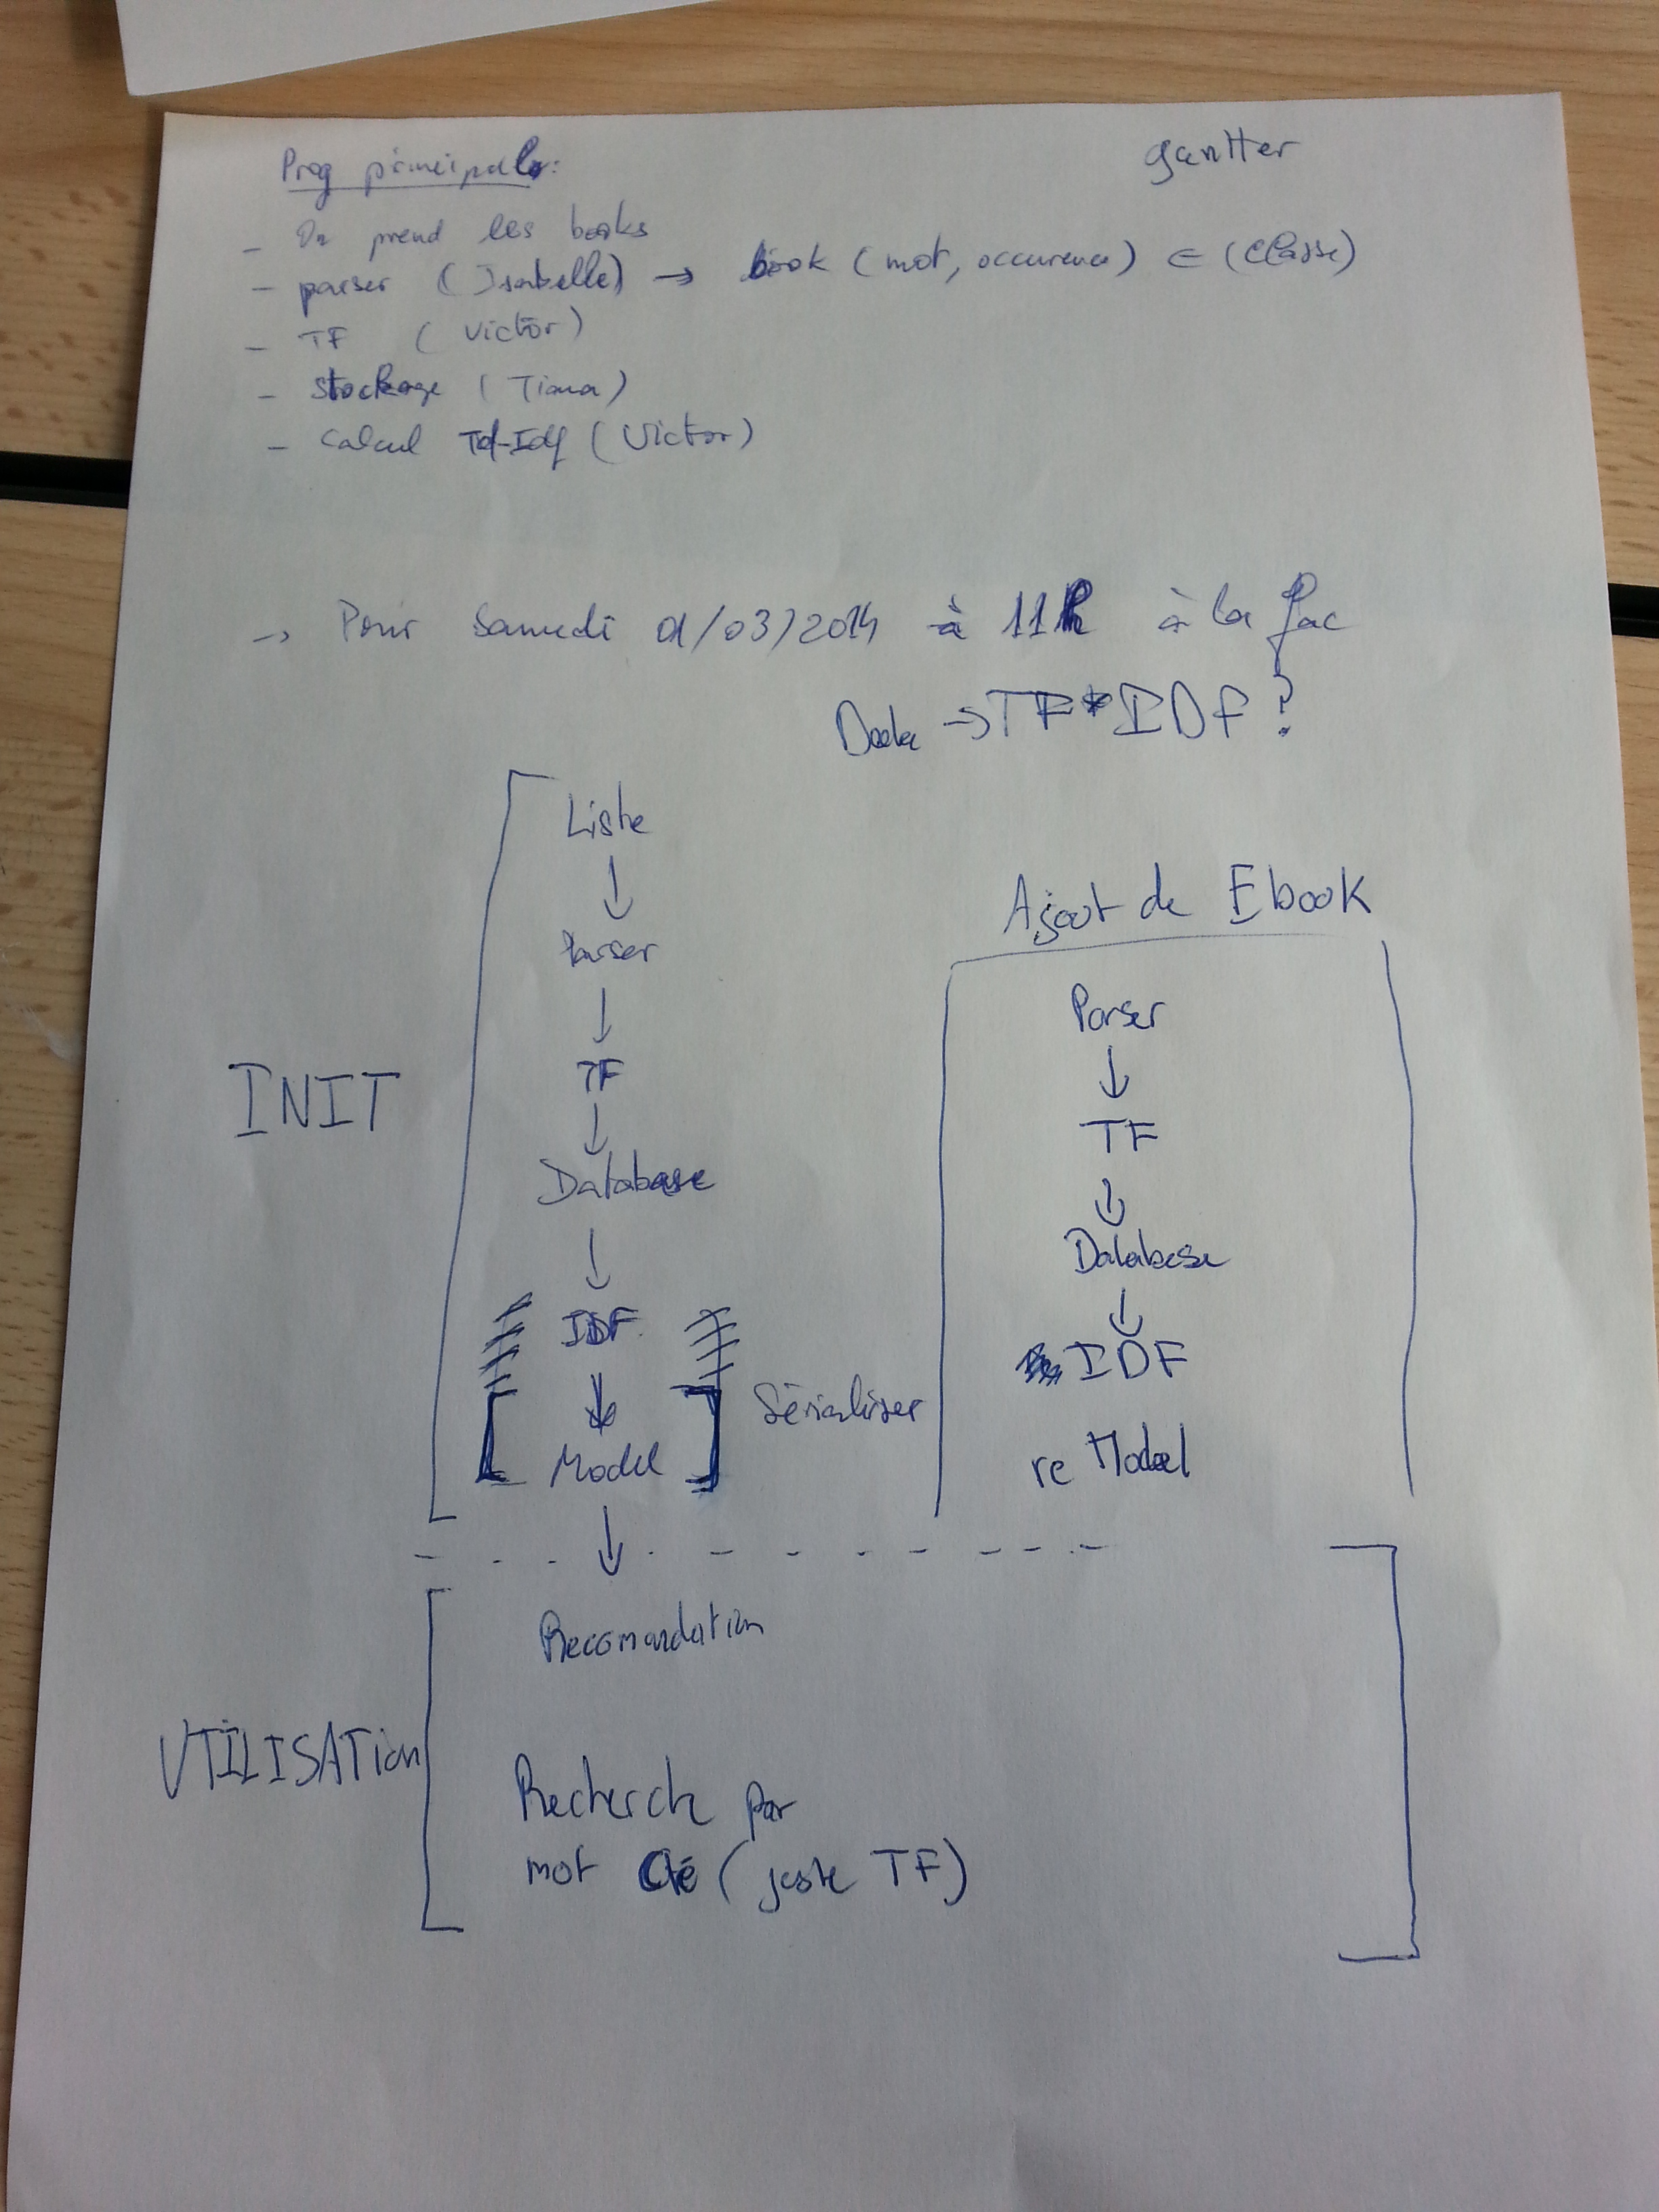 Prog principale:
gantter
- On prend les books
- parser (Isabelle) → book (mot, occurence) ∈ (classe)
- TF (Victor)
- Stockage (Tiana)
- Calcul Tf-Idf (Victor)
→ Pour samedi 01/03/2014 à 11h à la fac
Data → TF*IDF?
INIT
Liste
↓
Parser
↓
TF
↓
Database
↓
IDF
↓
Model
↓
Sérialiser
Ajout de Ebook
Parser
↓
TF
↓
Database
↓
IDF
re Model
UTILISATion
Recomandation
Recherch par
mot clé (juste TF)